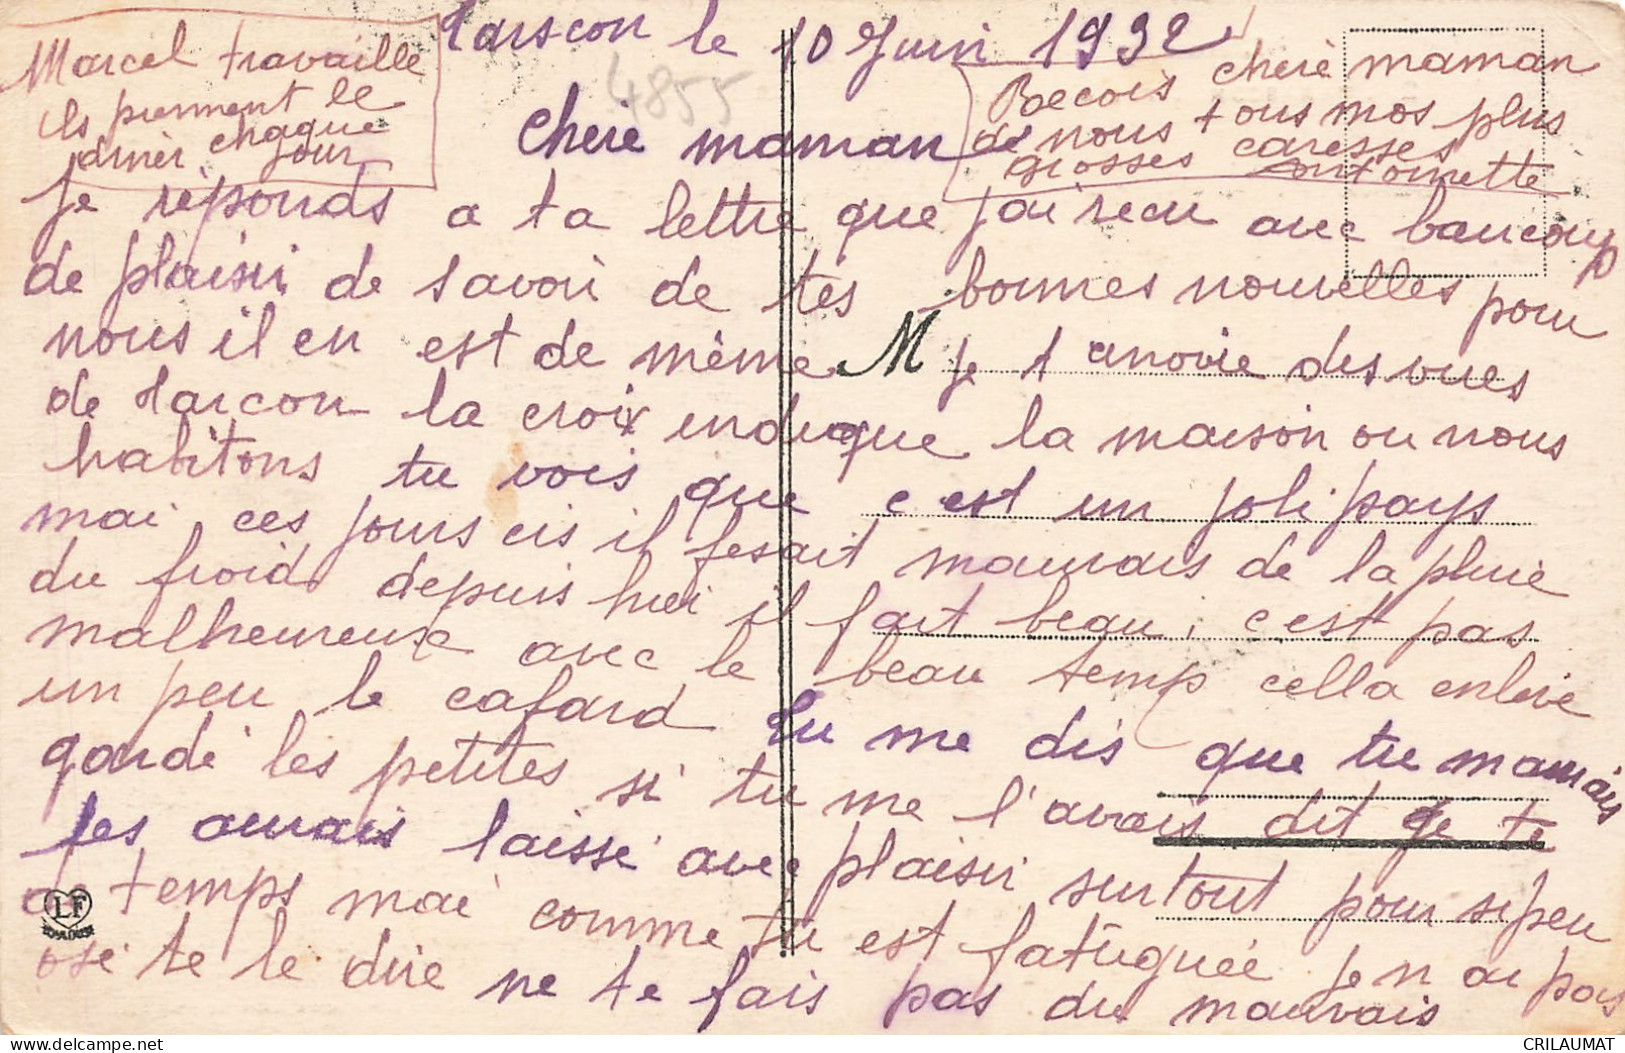 Tarscon le 10 Juin 1932
4855
Marcel travaille
ils prennent le
diner chaque
jour
Recois chere maman
de nous tous mos plus
grosses caresses
Antoinette
Chere maman
Je réponds a ta lettre que jai recu avec baucoup
de plaisir de savoir de tes bonnes nouvelles pour
nous il en est de même M je t anovie des vues
de Tarcon la croix indique la maison ou nous
habitons tu vois que c est un joli pays
mai ces jours cis il fesait mauvais de la pluie
du froid depuis hei il fait beau, c est pas
malheureux avec le beau temp cella enleve
un peu le cafard Tu me dis que tu mamais
gardé les petites si tu me l'avais dit je te
les aurais laissé avec plaisir surtout pour si peu
de temps mai comme tu est fatiguée je n ai pas
osé te le dire ne te fais pas du mauvais
LF
TOULOUSE
CRILAUMAT
www.delcampe.net